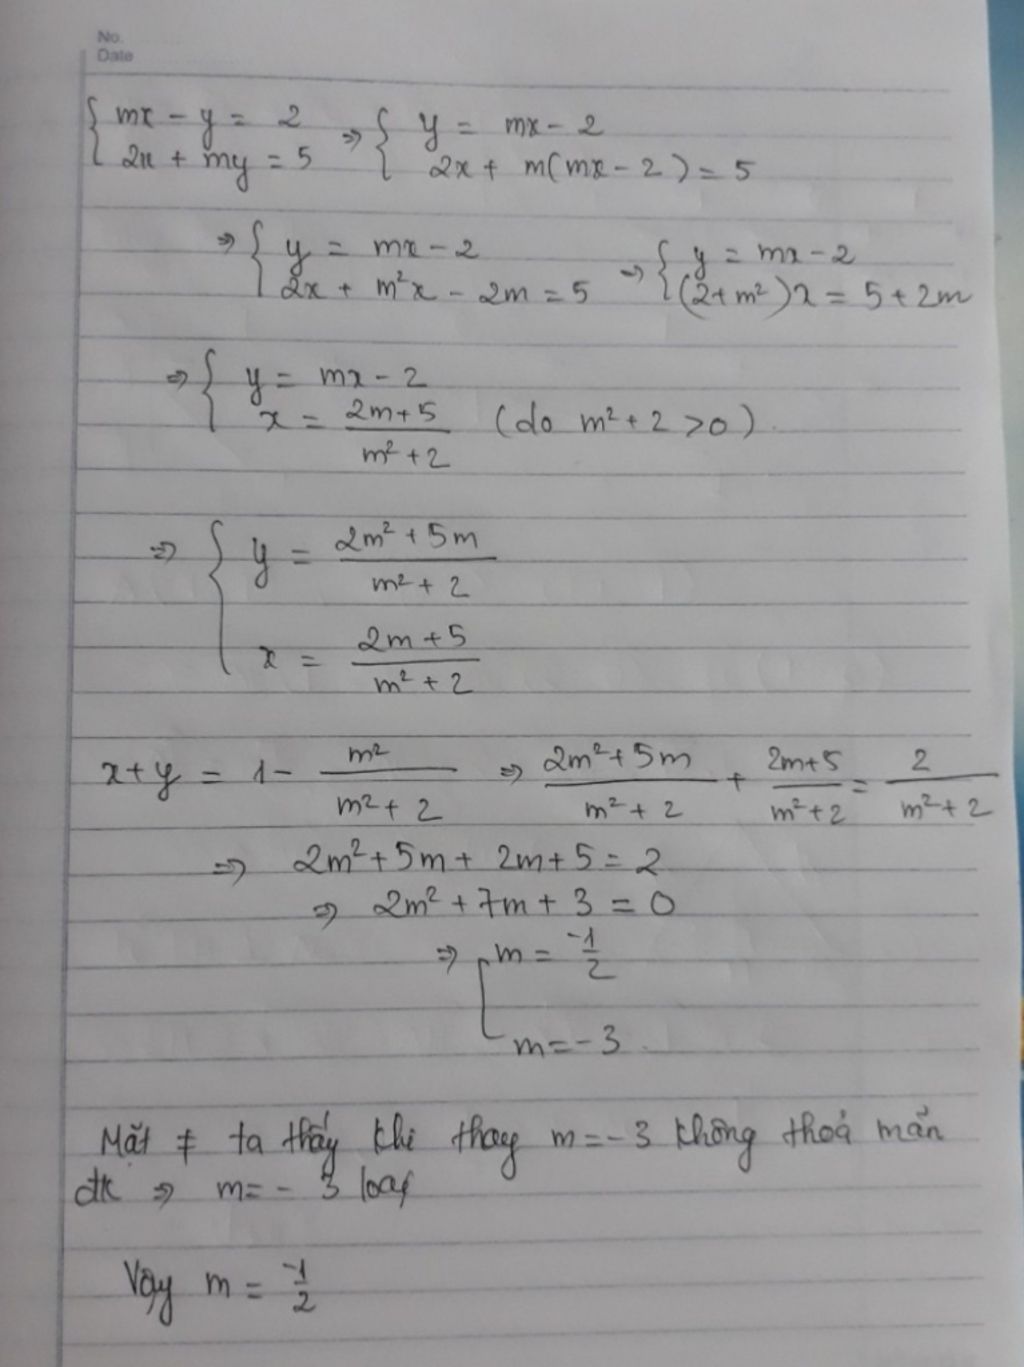 No.
Date
{ mx - y = 2
2x + my = 5 => { y = mx - 2
2x + m(mx - 2) = 5
=> { y = mx - 2
2x + m²x - 2m = 5 => { y = mx - 2
(2+m²)x = 5 + 2m
=> { y = mx - 2
x = (2m+5)/(m²+2) (do m² + 2 > 0).
=> { y = (2m² + 5m)/(m² + 2)
x = (2m + 5)/(m² + 2)
x + y = 1 - m²/(m² + 2) => (2m² + 5m)/(m² + 2) + (2m+5)/(m²+2) = 2/(m² + 2)
=> 2m² + 5m + 2m + 5 = 2
=> 2m² + 7m + 3 = 0
=> [ m = -1/2
m = -3.
Mặt ≠ ta thấy khi thay m = -3 không thoả mãn
đk => m = -3 loại
Vậy m = -1/2